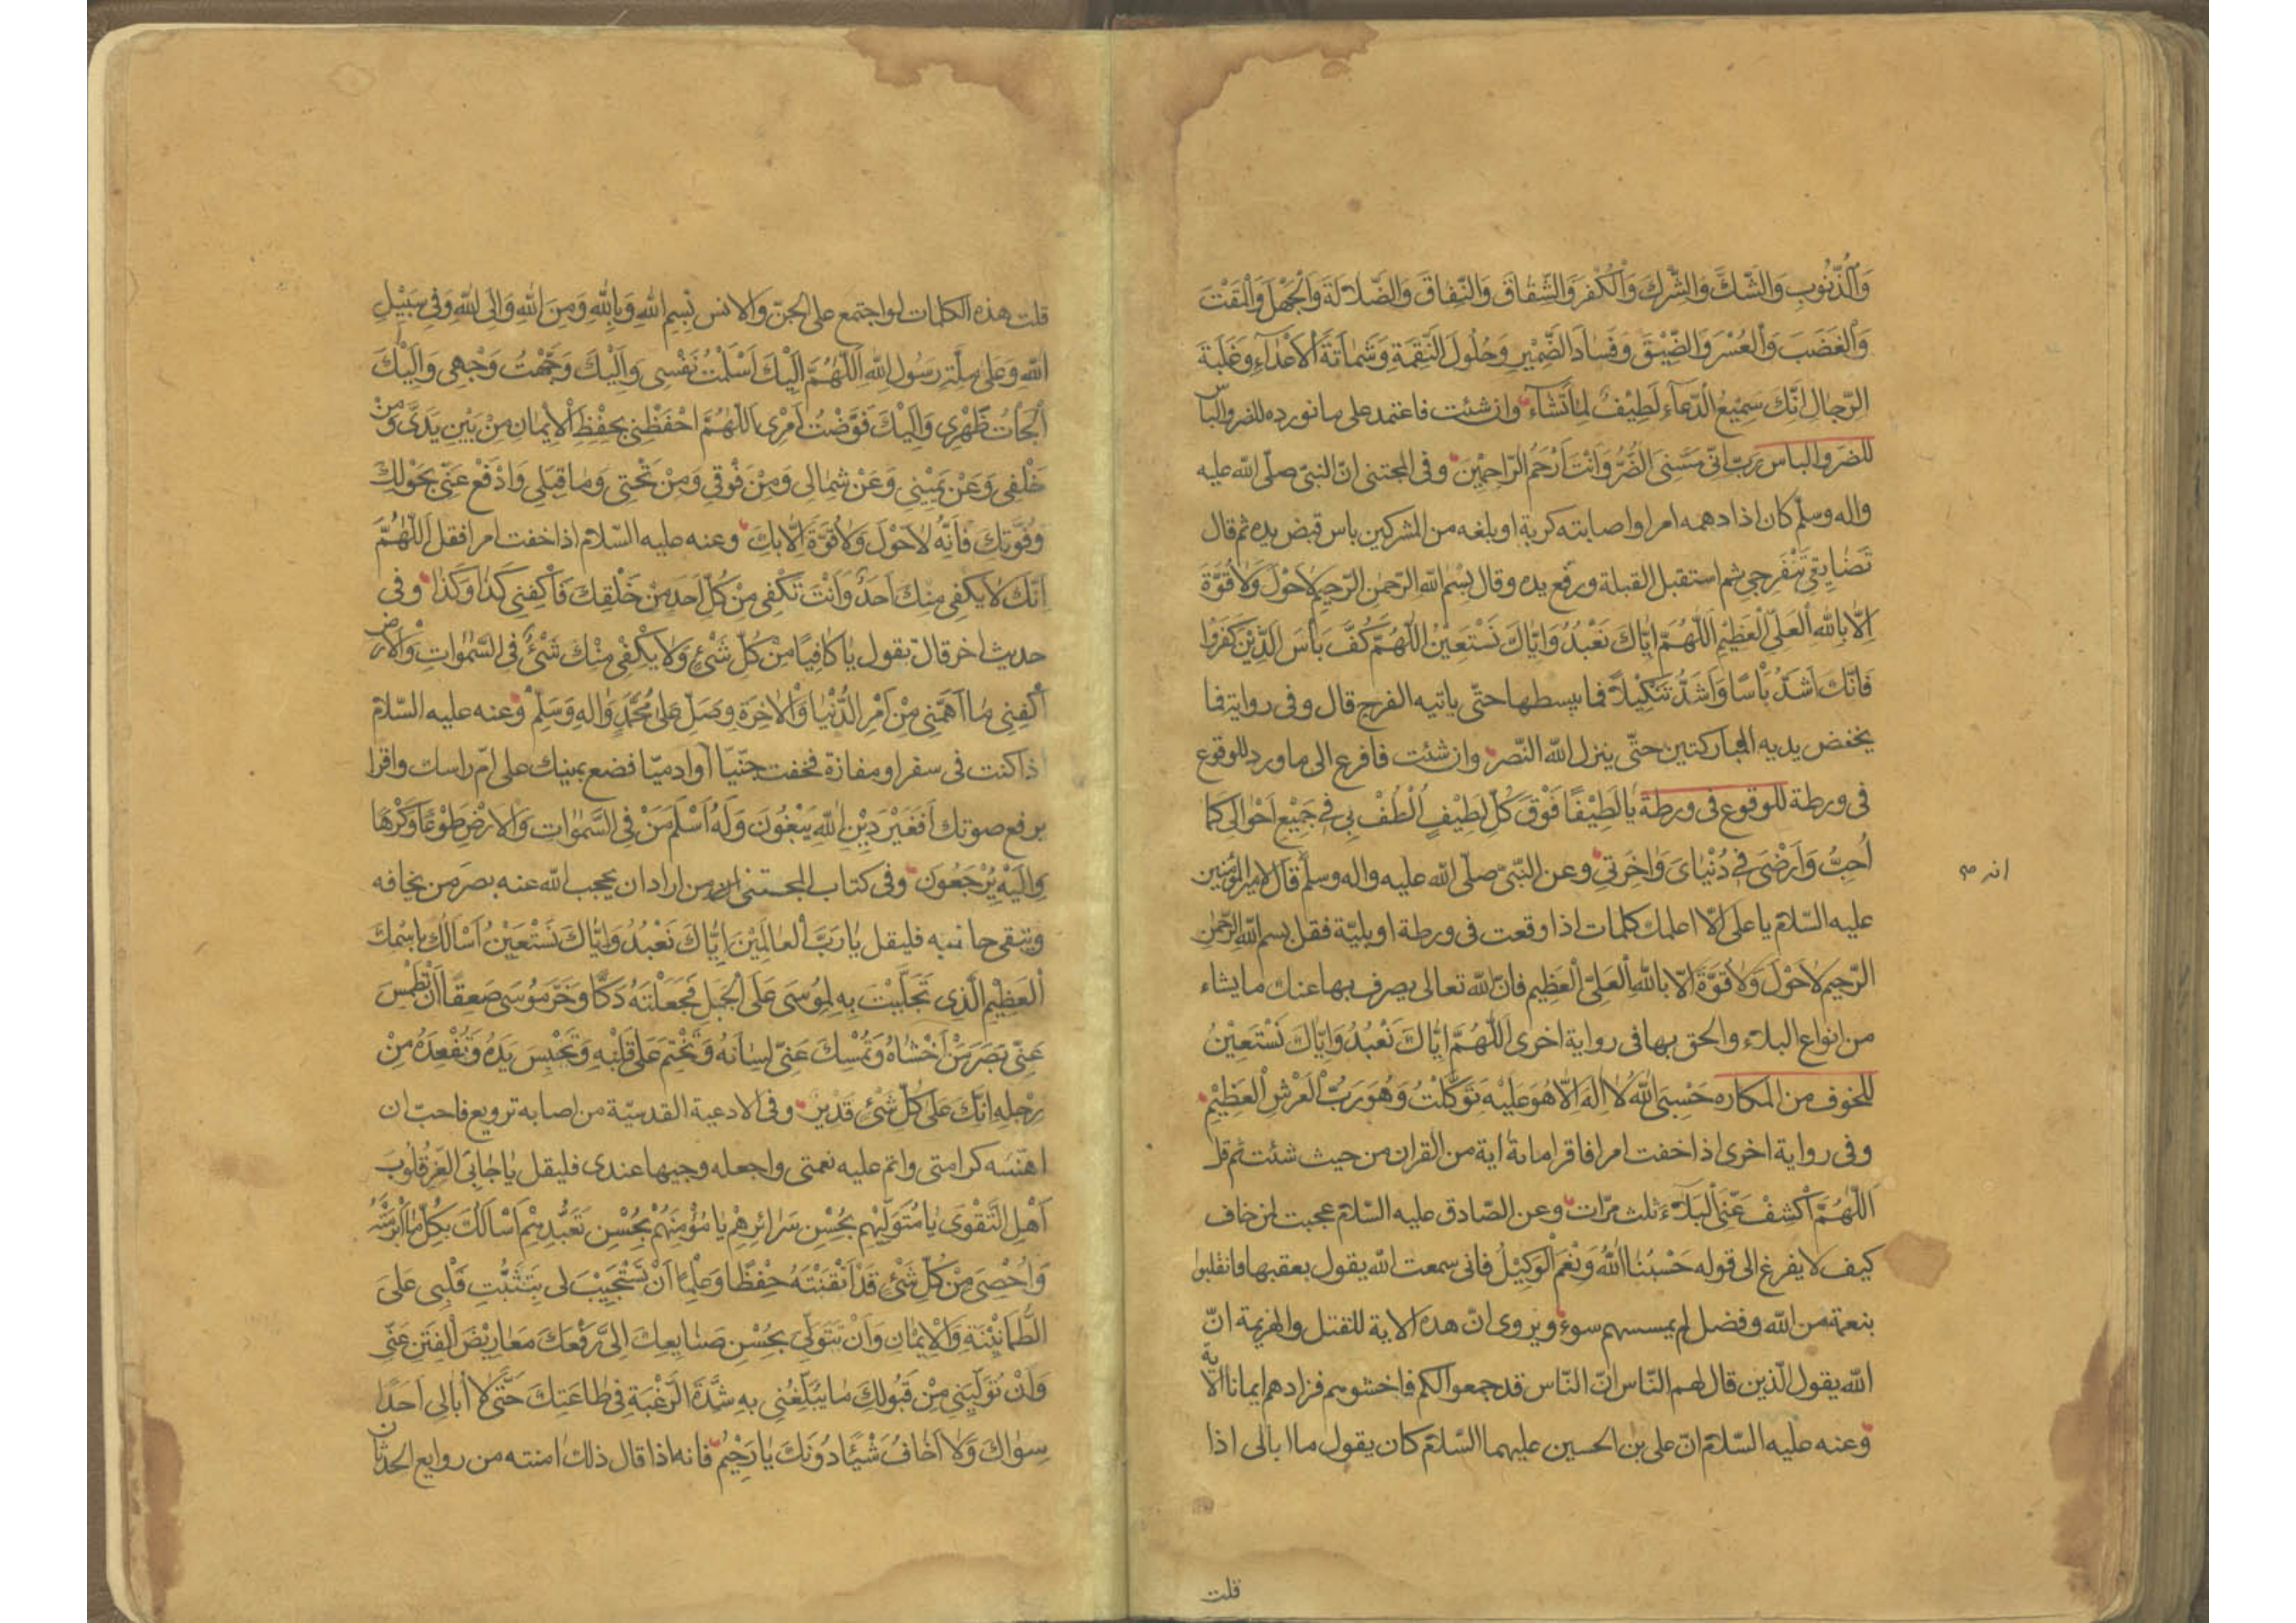 وَالذُّنُوبِ وَالشَّكَّ وَالشِّرْكَ وَالْكُفْرَ وَالشِّقَاقَ وَالنِّفَاقَ وَالضَّلَالَةَ وَالْجَهْلَ وَالْمَقْتَ
وَالْغَضَبَ وَالْعُسْرَ وَالضِّيْقَ وَفَسَادَ الضَّمِيْرِ وَحُلُولَ النَّقِمَةِ وَشَمَاتَةَ الْأَعْدَاءِ وَغَلَبَةَ
الرِّجَالِ اِنَّكَ سَمِيْعُ الدُّعَاءِ لَطِيْفٌ لِمَا تَشَاءُ وان شئت فاعتمد على ما نورده للضر والباس
للضر والباس رَبِّ اِنِّي مَسَّنِيَ الضُّرُّ وَاَنْتَ اَرْحَمُ الرَّاحِمِيْنَ وفي المجتنى انّ النبىّ صلّى الله عليه
واله وسلّم كان اذا دهمه امر او اصابته كربة او بلغه من المشركين باس قبض يده ثم قال
تَضَايَقِي تَنْفَرِجِي ثم استقبل القبلة ورفع يده وقال بِسْمِ اللهِ الرَّحْمٰنِ الرَّحِيمِ لَاحَوْلَ وَلَا قُوَّةَ
اِلَّا بِاللهِ الْعَلِيِّ الْعَظِيْمِ اَللّٰهُمَّ اِيَّاكَ نَعْبُدُ وَاِيَّاكَ نَسْتَعِيْنُ اَللّٰهُمَّ كُفَّ بَأْسَ الَّذِيْنَ كَفَرُوا
فَاِنَّكَ اَشَدُّ بَأْسًا وَاَشَدُّ تَنْكِيْلًا فما يبسطها حتّى ياتيه الفرج قال وفى رواية فما
يخفض يديه المباركتين حتّى ينزل الله النّصر وان شئت فافرع الى ما ورد للوقوع
فى ورطة للوقوع فى ورطة يَا لَطِيْفًا فَوْقَ كُلِّ لَطِيْفٍ اُلْطُفْ بِي فِي جَمِيْعِ اَحْوَالِي كَمَا
اُحِبُّ وَاَرْضَى فِي دُنْيَايَ وَاٰخِرَتِي وعن النّبىّ صلّى الله عليه واله وسلّم قال لامير المؤمنين
انه ص
عليه السّلام يا على الا اعلمك كلمات اذا وقعت فى ورطة او بليّة فقل بسم الله الرّحمٰن
الرّحيم لَاحَوْلَ وَلَا قُوَّةَ اِلَّا بِاللهِ الْعَلِيِّ الْعَظِيمِ فانّ الله تعالى يصرف بها عنك ما يشاء
من انواع البلاء والحق بها فى رواية اخرى اَللّٰهُمَّ اِيَّاكَ نَعْبُدُ وَاِيَّاكَ نَسْتَعِيْنُ
للخوف من المكاره حَسْبِيَ اللهُ لَا اِلٰهَ اِلَّا هُوَ عَلَيْهِ تَوَكَّلْتُ وَهُوَ رَبُّ الْعَرْشِ الْعَظِيْمِ
وفى رواية اخرى اذا خفت امرا فاقرا مائة اية من القران من حيث شئت ثم قل
اَللّٰهُمَّ اكْشِفْ عَنِّي الْبَلَاءَ ثلث مرّات وعن الصّادق عليه السّلام عجبت لمن خاف
كيف لا يفرغ الى قوله حَسْبُنَا اللهُ وَنِعْمَ الْوَكِيْلُ فانى سمعت الله يقول بعقبها فانقلبوا
بنعمة من الله وفضل لم يمسسهم سوء ويروى انّ هذه الاية للتقتل والهزيمة انّ
الله يقول الّذين قال لهم النّاس انّ النّاس قد جمعوا لكم فاخشوهم فزادهم ايمانا الاٰية
وعنه عليه السّلام انّ على بن الحسين عليهما السّلام كان يقول ما ابالى اذا
قلت
قلت هذه الكلمات لو اجتمع على الجنّ والانس بِسْمِ اللهِ وَبِاللهِ وَمِنَ اللهِ وَاِلَى اللهِ وَفِي سَبِيْلِ
اللهِ وَعَلٰى مِلَّةِ رَسُولِ اللهِ اَللّٰهُمَّ اِلَيْكَ اَسْلَمْتُ نَفْسِي وَاِلَيْكَ وَجَّهْتُ وَجْهِي وَاِلَيْكَ
اَلْجَأْتُ ظَهْرِي وَاِلَيْكَ فَوَّضْتُ اَمْرِي اَللّٰهُمَّ احْفَظْنِي بِحِفْظِ الْاِيْمَانِ مِنْ بَيْنِ يَدَيَّ وَمِنْ
خَلْفِي وَعَنْ يَمِيْنِي وَعَنْ شِمَالِي وَمِنْ فَوْقِي وَمِنْ تَحْتِي وَمَا قِبَلِي وَادْفَعْ عَنِّي بِحَوْلِكَ
وَقُوَّتِكَ فَاِنَّهُ لَاحَوْلَ وَلَا قُوَّةَ اِلَّا بِكَ وعنه عليه السّلام اذا خفت امرا فقل اَللّٰهُمَّ
اِنَّكَ لَا يَكْفِي مِنْكَ اَحَدٌ وَاَنْتَ تَكْفِي مِنْ كُلِّ اَحَدٍ مِنْ خَلْقِكَ فَاكْفِنِي كَذَا وَكَذَا وفى
حديث اخر قال تقول يَا كَافِيًا مِنْ كُلِّ شَيْءٍ وَلَا يَكْفِي مِنْكَ شَيْءٌ فِي السَّمٰوَاتِ وَالْاَرْضِ
اكْفِنِي مَا اَهَمَّنِي مِنْ اَمْرِ الدُّنْيَا وَالْاٰخِرَةِ وَصَلِّ عَلٰى مُحَمَّدٍ وَاٰلِهِ وَسَلِّمْ وعنه عليه السّلام
اذا كنت فى سفر او مفازة فخفت جنّيّا او ادميّا فضع يمينك على امّ راسك واقرا
برفع صوتك اَفَغَيْرَ دِيْنِ اللهِ يَبْغُونَ وَلَهُ اَسْلَمَ مَنْ فِي السَّمٰوَاتِ وَالْاَرْضِ طَوْعًا وَكَرْهًا
وَاِلَيْهِ يُرْجَعُونَ وفى كتاب المجتنى من اراد ان يحجب الله عنه بصر من يخافه
ويتقى جانبه فليقل يَا رَبَّ الْعَالَمِيْنَ اِيَّاكَ نَعْبُدُ وَاِيَّاكَ نَسْتَعِيْنُ اَسْاَلُكَ بِاسْمِكَ
الْعَظِيْمِ الَّذِي تَجَلَّيْتَ بِهِ لِمُوسَى عَلَى الْجَبَلِ فَجَعَلْتَهُ دَكًّا وَخَرَّ مُوسَى صَعِقًا اَنْ تَطْمِسَ
عَنِّي بَصَرَ مَنْ اَخْشَاهُ وَتُمْسِكَ عَنِّي لِسَانَهُ وَتَخْتِمَ عَلٰى قَلْبِهِ وَتَحْبِسَ يَدَهُ وَتُقْعِدَهُ مِنْ
رِجْلِهِ اِنَّكَ عَلٰى كُلِّ شَيْءٍ قَدِيْرٌ وفى الادعية القدسيّة من اصابه ترويع فاحبّ ان
اهنئه كرامتى واتم عليه نعمتى واجعله وجيها عندى فليقل يَا جَابِيَ الْعِزِّ قُلُوبَ
اَهْلِ التَّقْوَى يَا مُتَوَلِّيَهُمْ بِحُسْنِ سَرَائِرِهِمْ يَا مُؤْمِنَهُمْ بِحُسْنِ تَعَبُّدِهِمْ اَسْاَلُكَ بِكُلِّ مَا اَبْرَمْتَهُ
وَاُحْصِيَ مِنْ كُلِّ شَيْءٍ قَدْ اَتْقَنْتَهُ حِفْظًا وَعِلْمًا اَنْ تَسْتَجِيْبَ لِي بِتَثَبُّتِ قَلْبِي عَلَى
الطُّمَأْنِيْنَةِ وَالْاِيْمَانِ وَاَنْ تَتَوَلَّى بِحُسْنِ صَنَايِعِكَ اِلَيَّ رَفْعَكَ مَعَارِيْضَ الْفِتَنِ عَنِّي
وَاَنْ تُوَلِّيَنِي مِنْ قَبُولِكَ مَا يُبَلِّغُنِي بِهِ شِدَّةَ الرَّغْبَةِ فِي طَاعَتِكَ حَتَّى لَا اُبَالِي اَحَدًا
سِوَاكَ وَلَا اَخَافُ شَيْئًا دُونَكَ يَا رَحِيْمُ فانه اذا قال ذلك امنته من روايع الحدثان